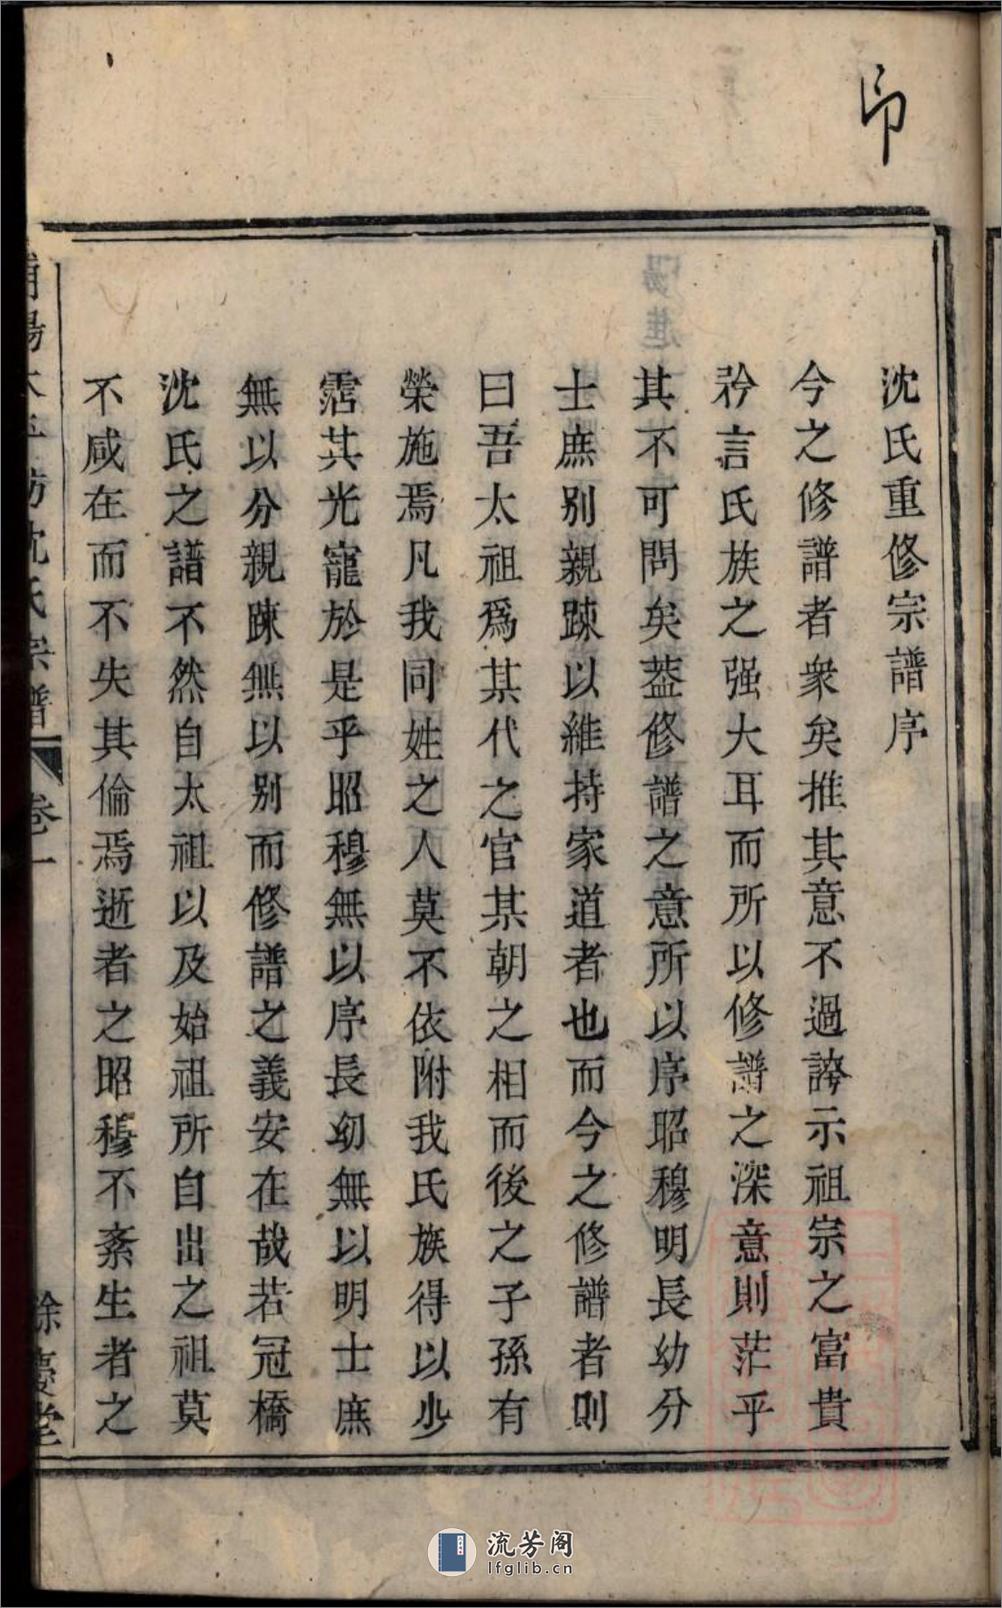 印
沈氏重修宗譜序
今之修譜者衆矣推其意不過誇示祖宗之富貴
矜言氏族之强大耳而所以修譜之深意則茫乎
其不可問矣葢修譜之意所以序昭穆明長幼分
士庶别親踈以維持家道者也而今之修譜者則
曰吾太祖爲某代之官某朝之相而後之子孫有
榮施焉凡我同姓之人莫不依附我氏族得以少
霑其光寵於是乎昭穆無以序長幼無以明士庶
無以分親踈無以别而修譜之義安在哉若冠橋
沈氏之譜不然自太祖以及始祖所自出之祖莫
不咸在而不失其倫焉逝者之昭穆不紊生者之
沈氏宗譜 卷一 餘慶堂
流芳阁
lfglib.cn